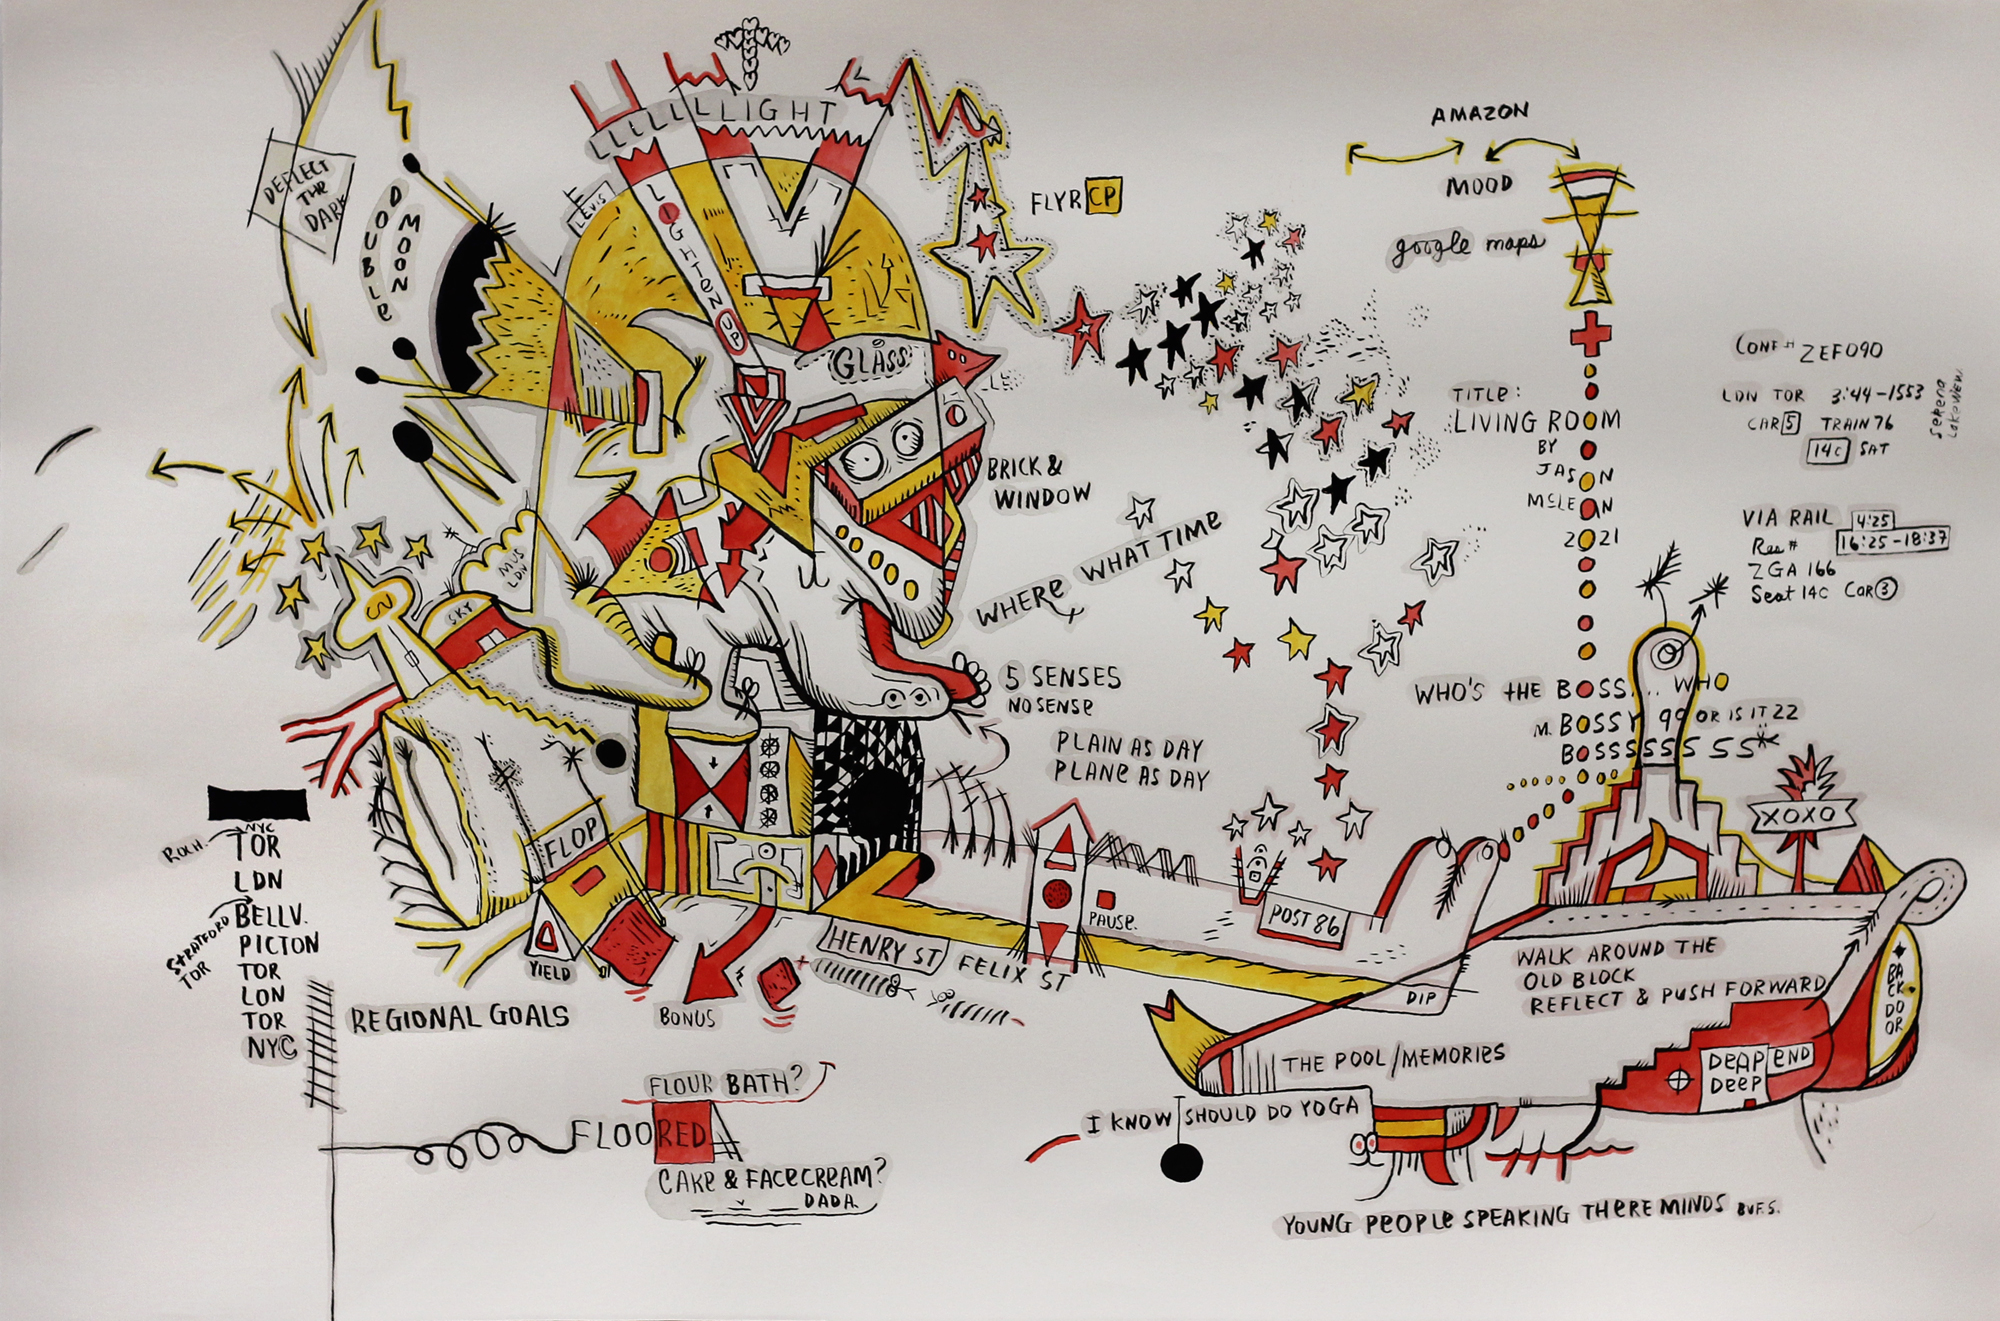 DEFLECT
THE
DARK
DOUBLE
MOON
LEVIS
LLLLLLLIGHT
LIGHTEN UP
GLASS
FLYR CP
AMAZON
MOOD
google maps
BRICK &
WINDOW
WHERE WHAT TIME
TITLE:
LIVING ROOM
BY
JASON
MCLEAN
2021
CONF # ZEF090
LDN TOR 3:44-1553
CAR 5 TRAIN 76
14C SAT
Serena
Lakeview.
VIA RAIL 4:25
Res # 16:25-18:37
ZGA 166
Seat 14C Car 3
MUS
LDN
SKY
5 SENSES
NO SENSE
PLAIN AS DAY
PLANE AS DAY
WHO'S THE BOSS... WHO
M. BOSSY 99 OR IS IT 22
BOSSSSSS SS
XOXO
FLOP
YIELD
ROCH.
NYC
TOR
LDN
STRATFORD
TOR
BELLV.
PICTON
TOR
LON
TOR
NYC
REGIONAL GOALS
BONUS
HENRY ST
FELIX ST
PAUSE.
POST 86
DIP
WALK AROUND THE
OLD BLOCK
REFLECT & PUSH FORWARD
BACK DOOR
THE POOL/MEMORIES
DEAP END
DEEP
I KNOW I SHOULD DO YOGA
FLOUR BATH?
FLOORED
CAKE & FACECREAM?
DADA.
YOUNG PEOPLE SPEAKING THERE MINDS